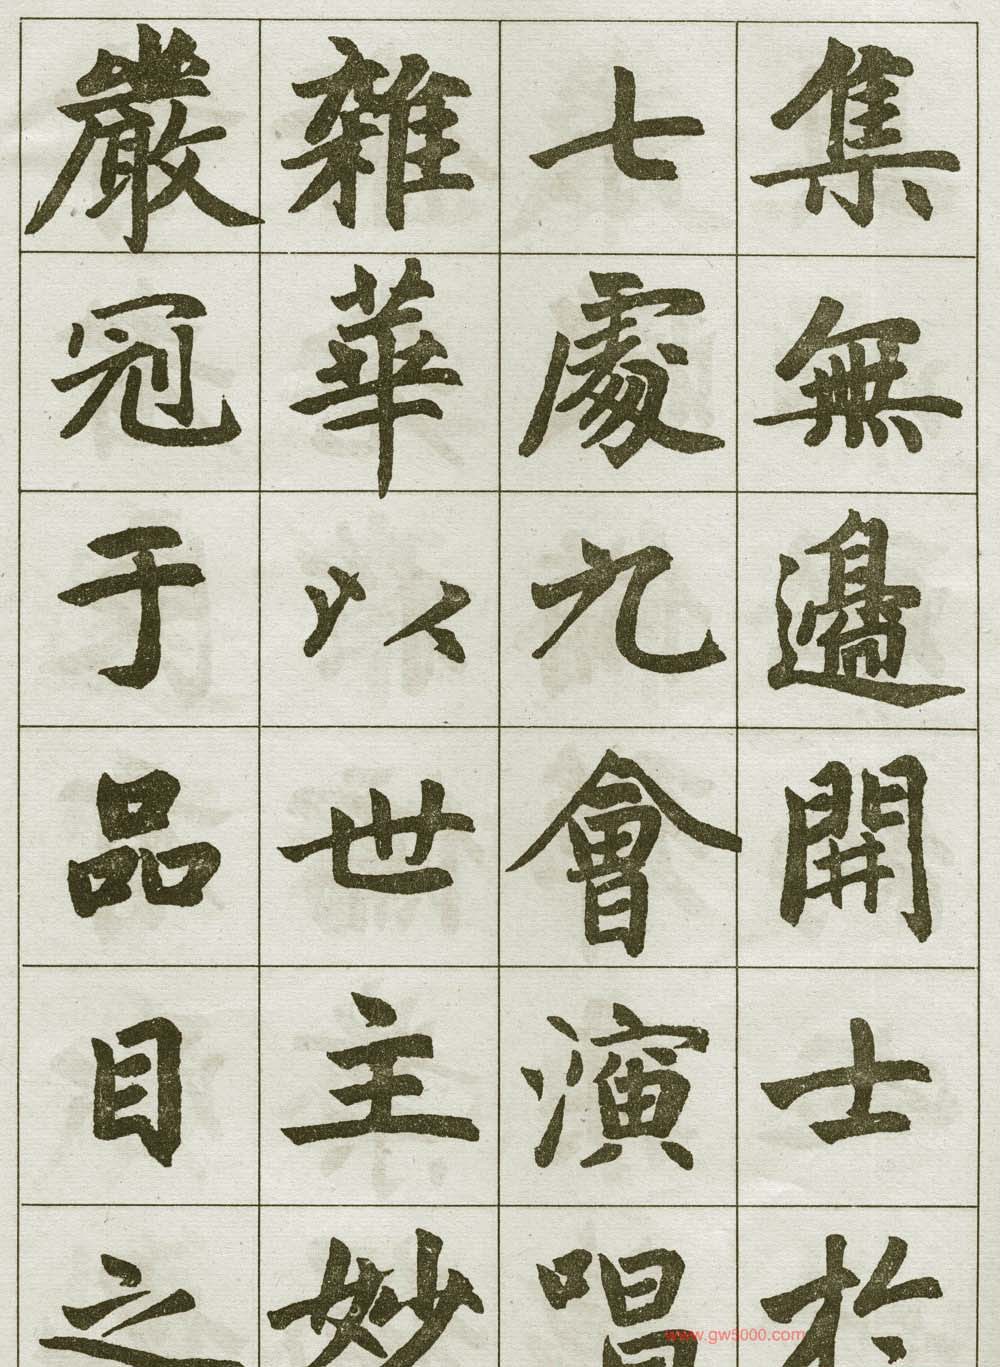 集無邊開士於
七處九會演唱
雜華以世主妙
嚴冠于品目之
www.gw5000.com